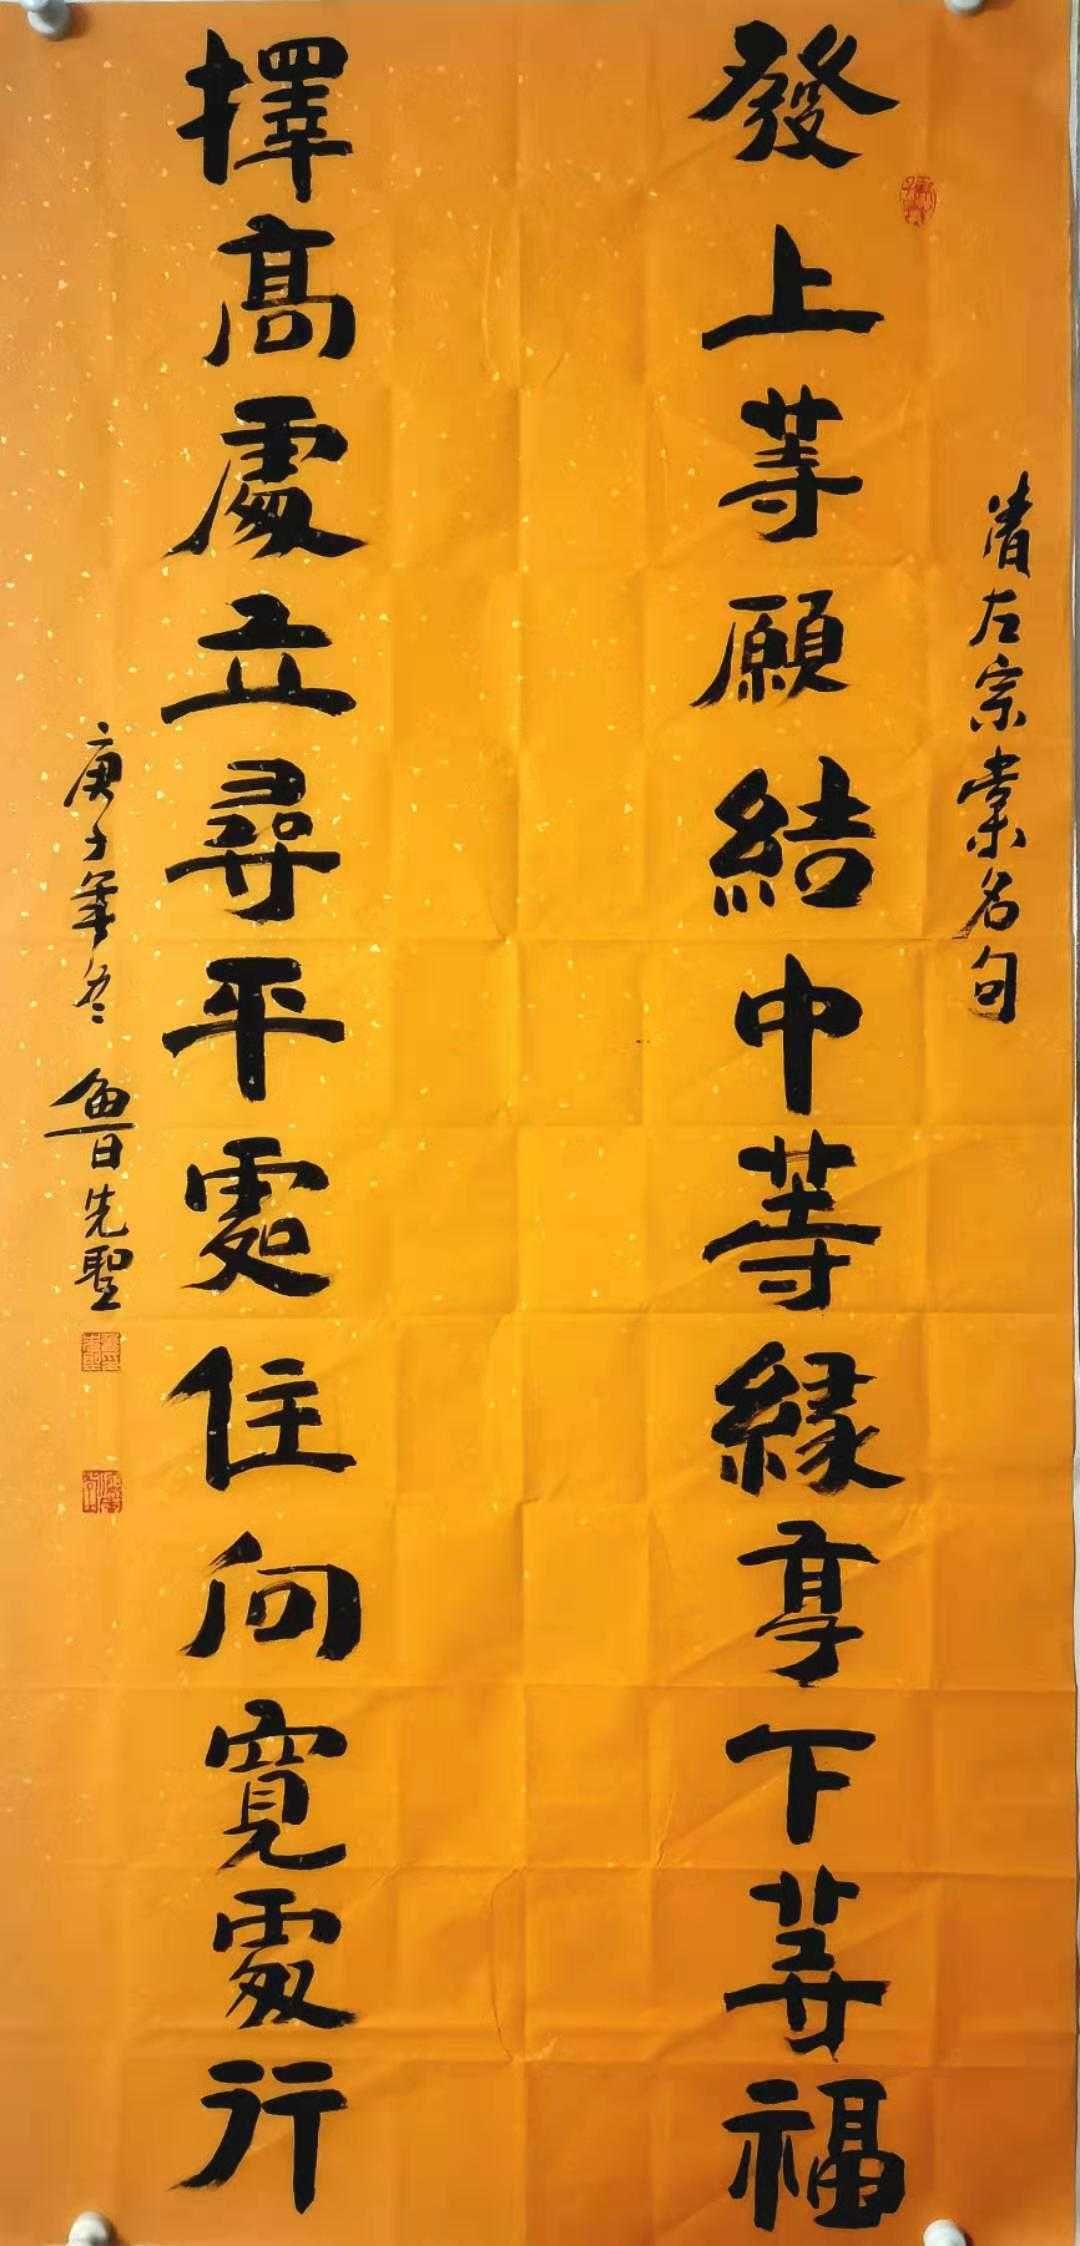 清左宗棠名句
發上等願結中等緣享下等福
擇高處立尋平處住向寬處行
庚子年冬 魯先聖